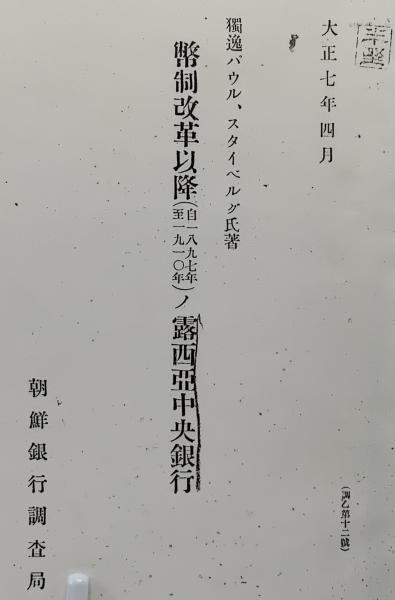 大正七年四月
(調乙第十二號)
獨逸パウル、スタイベルグ氏著
幣制改革以降(自一八九七年至一九一〇年)ノ露西亞中央銀行
朝鮮銀行調査局